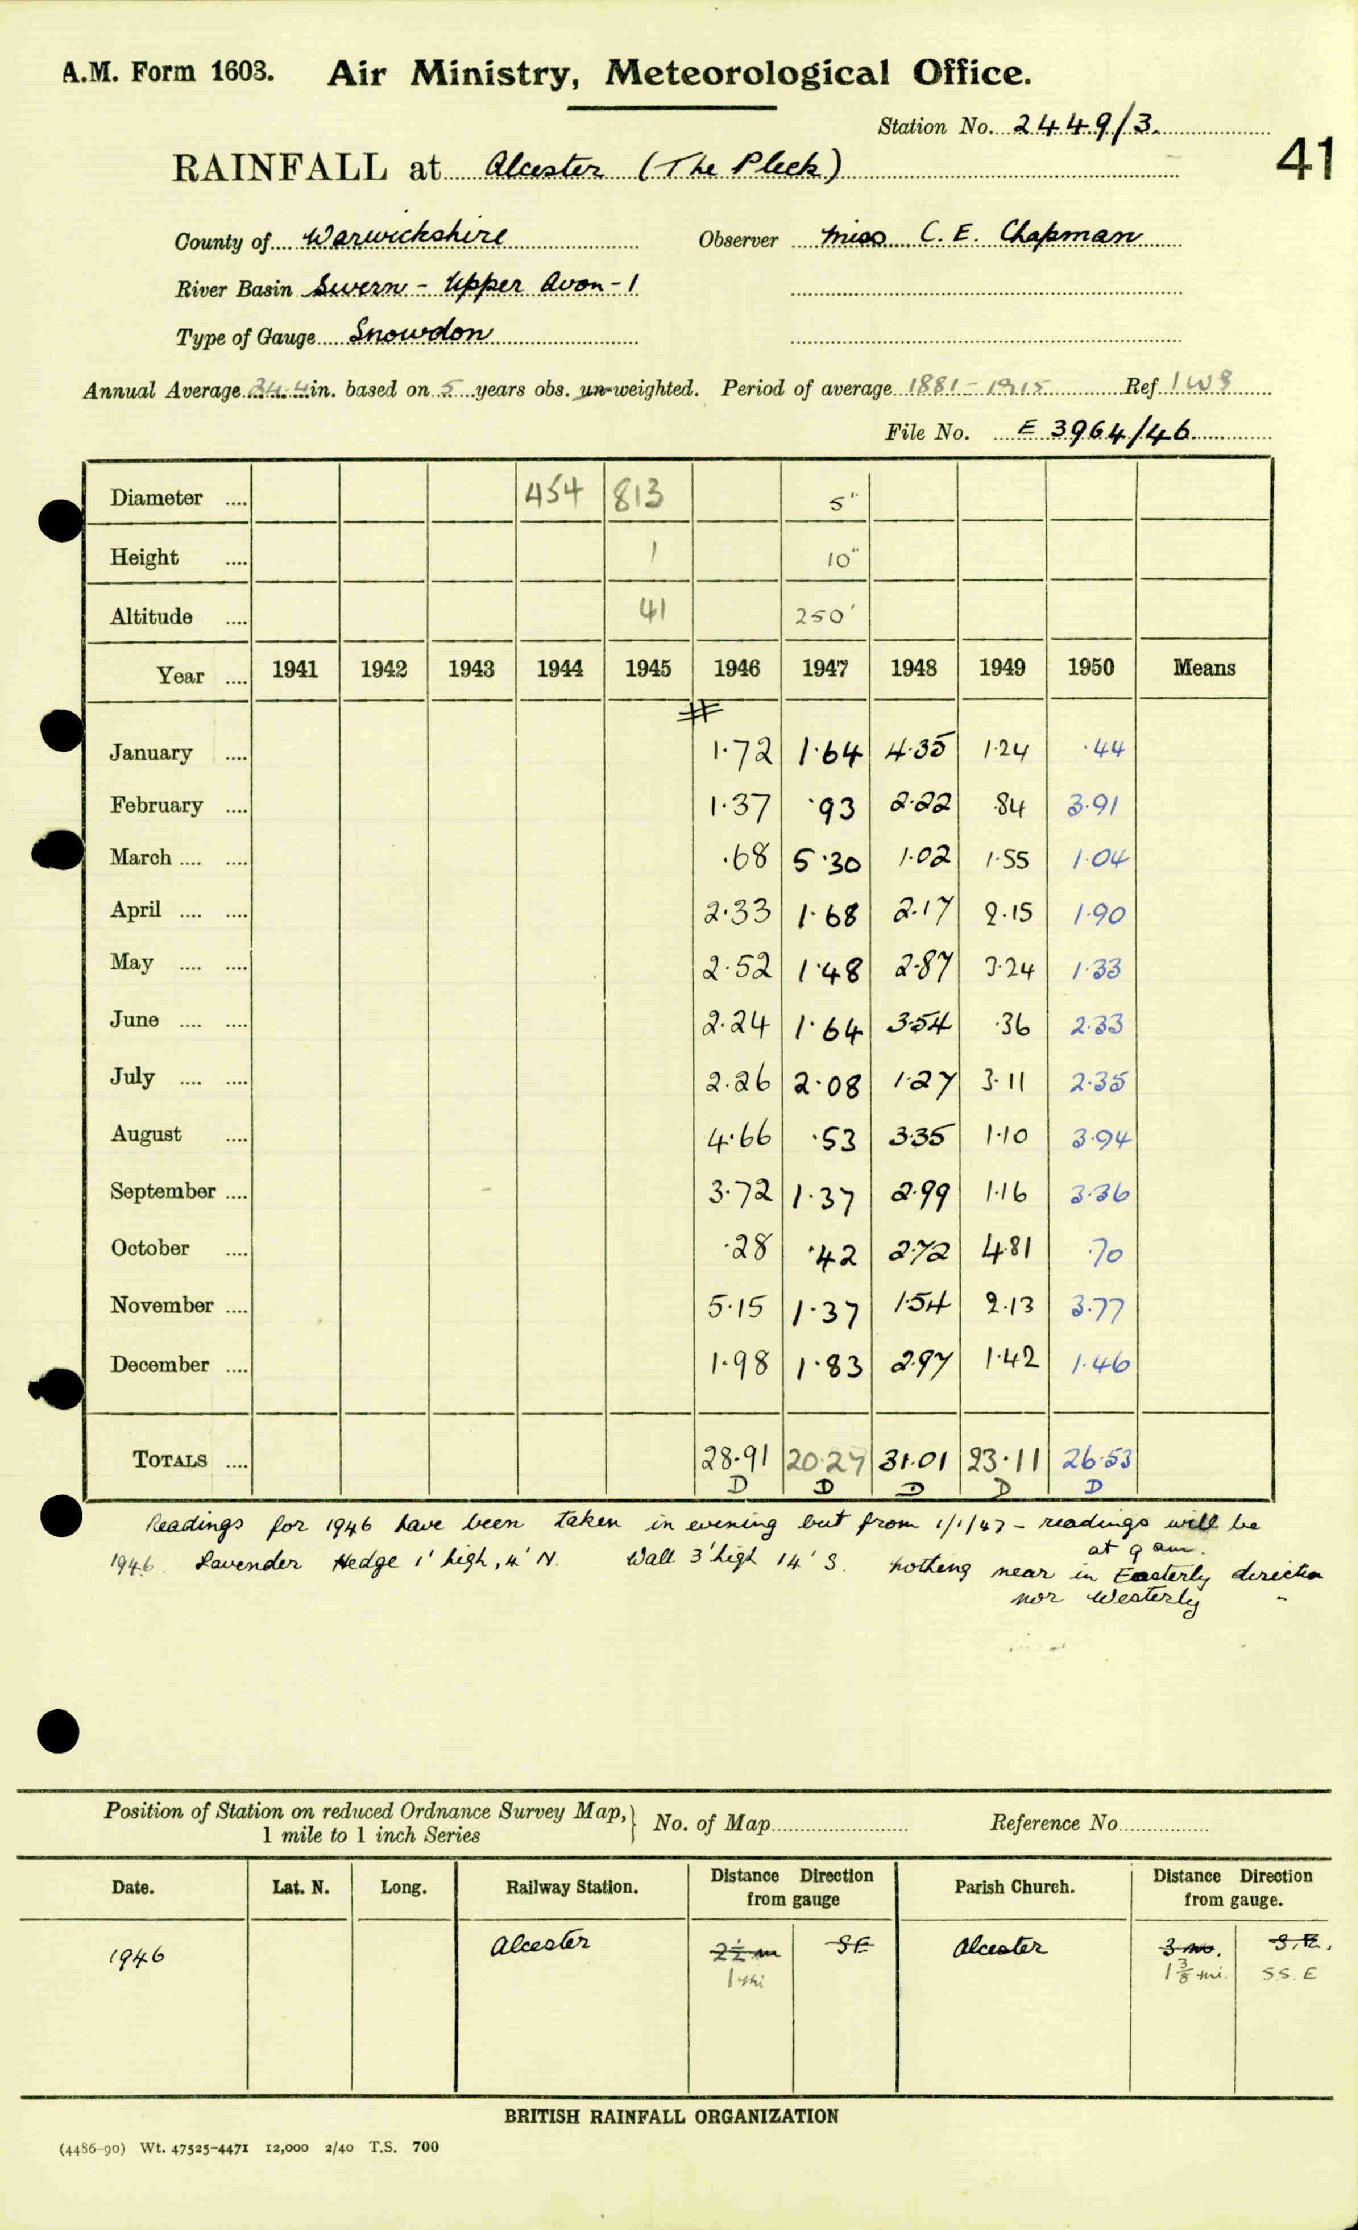 A.M. Form 1603. Air Ministry, Meteorological Office.
Station No. 2449/3.
41
RAINFALL at Alcester (The Pleck)
County of Warwickshire Observer Miss C. E. Chapman
River Basin Severn - Upper Avon - 1
Type of Gauge Snowdon
Annual Average 24.4 in. based on 5 years obs. un-weighted. Period of average 1881-1915 Ref.
File No. E 3964/46
Diameter .... 454 813 5"
Height .... 1 10"
Altitude .... 41 250'
Year .... 1941 1942 1943 1944 1945 1946 1947 1948 1949 1950 Means
#
January .... 1.72 1.64 4.35 1.24 .44
February .... 1.37 .93 2.22 .84 3.91
March .... .... .68 5.30 1.02 1.55 1.04
April .... .... 2.33 1.68 2.17 2.15 1.90
May .... .... 2.52 1.48 2.87 3.24 1.33
June .... .... 2.24 1.64 3.54 .36 2.33
July .... .... 2.26 2.08 1.27 3.11 2.35
August .... 4.66 .53 3.35 1.10 3.94
September .... 3.72 1.37 2.99 1.16 3.36
October .... .28 .42 2.72 4.81 .70
November .... 5.15 1.37 1.54 2.13 3.77
December .... 1.98 1.83 2.97 1.42 1.46
TOTALS .... 28.91 20.27 31.01 23.11 26.53
D D D D D
Readings for 1946 have been taken in evening but from 1/1/47 - readings will be
at 9 am.
1946 Lavender Hedge 1' high, 4' N. Wall 3' high 14' S. nothing near in Easterly direction
nor Westerly "
Position of Station on reduced Ordnance Survey Map, } No. of Map Reference No.
1 mile to 1 inch Series
Date. Lat. N. Long. Railway Station. Distance Direction from gauge Parish Church. Distance Direction from gauge.
1946 Alcester 2½ m SE Alcester 3 m. S.E.
1 mi 1 3/8 mi. S.S.E
BRITISH RAINFALL ORGANIZATION
(4486-90) Wt. 47525-4471 12,000 2/40 T.S. 700